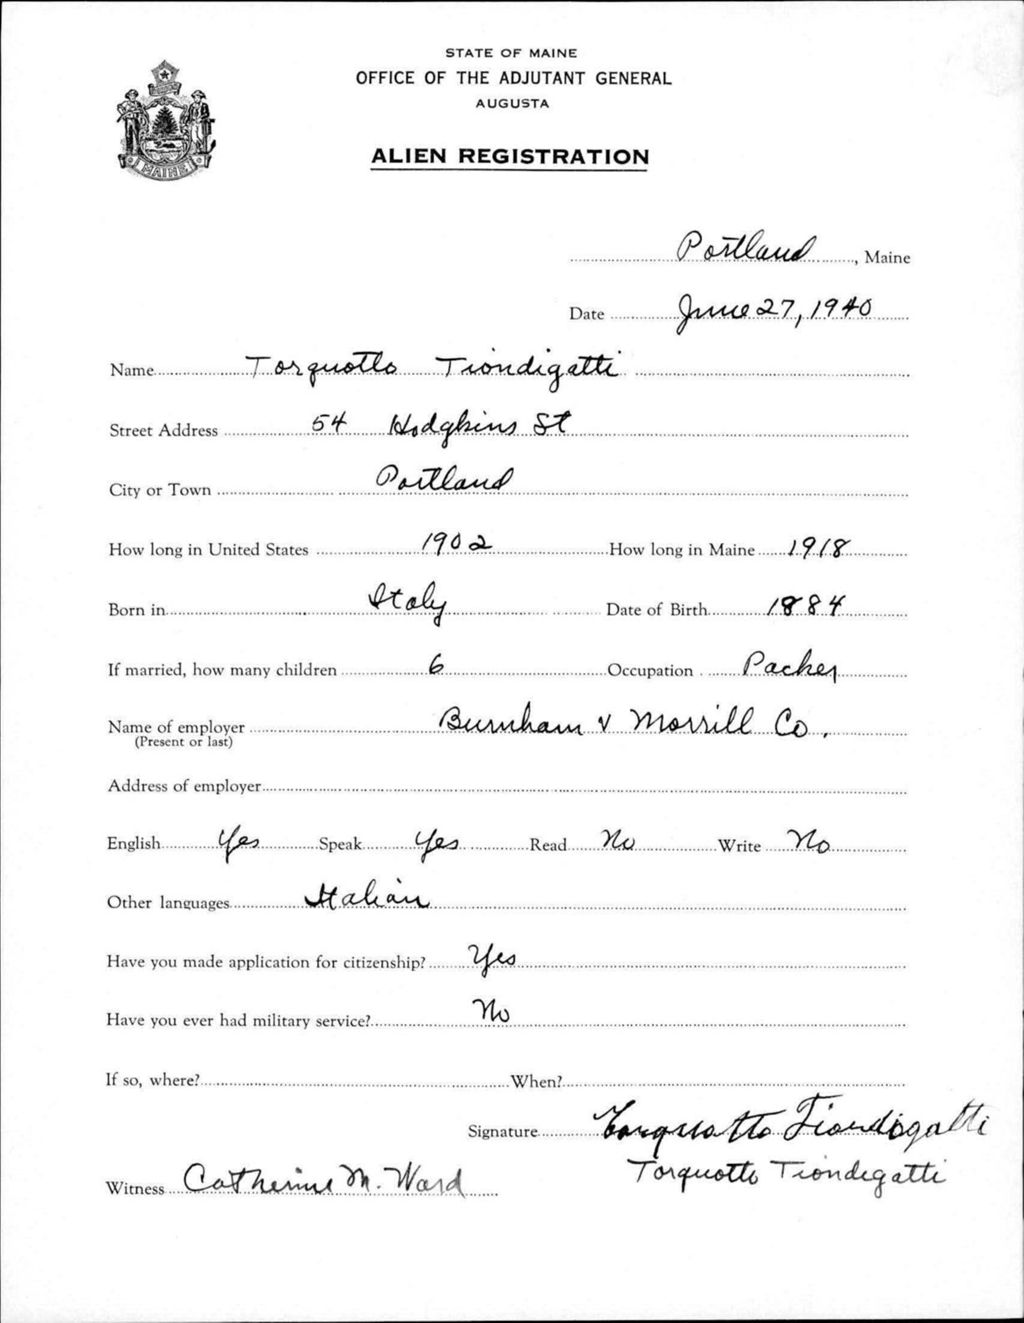 STATE OF MAINE
OFFICE OF THE ADJUTANT GENERAL
AUGUSTA
ALIEN REGISTRATION
MAINE
Portland, Maine
Date June 27, 1940
Name Torquotto Tiondigatti
Street Address 54 Hodgkins St
City or Town Portland
How long in United States 1902 How long in Maine 1918
Born in Italy Date of Birth 1884
If married, how many children 6 Occupation Packer
Name of employer Burnham & Morrill Co.
(Present or last)
Address of employer
English Yes Speak Yes Read No Write No
Other languages Italian
Have you made application for citizenship? Yes
Have you ever had military service? No
If so, where? When?
Signature Torquotto Tiondigatti
Witness Catherine M. Ward Torquotto Tiondegatti